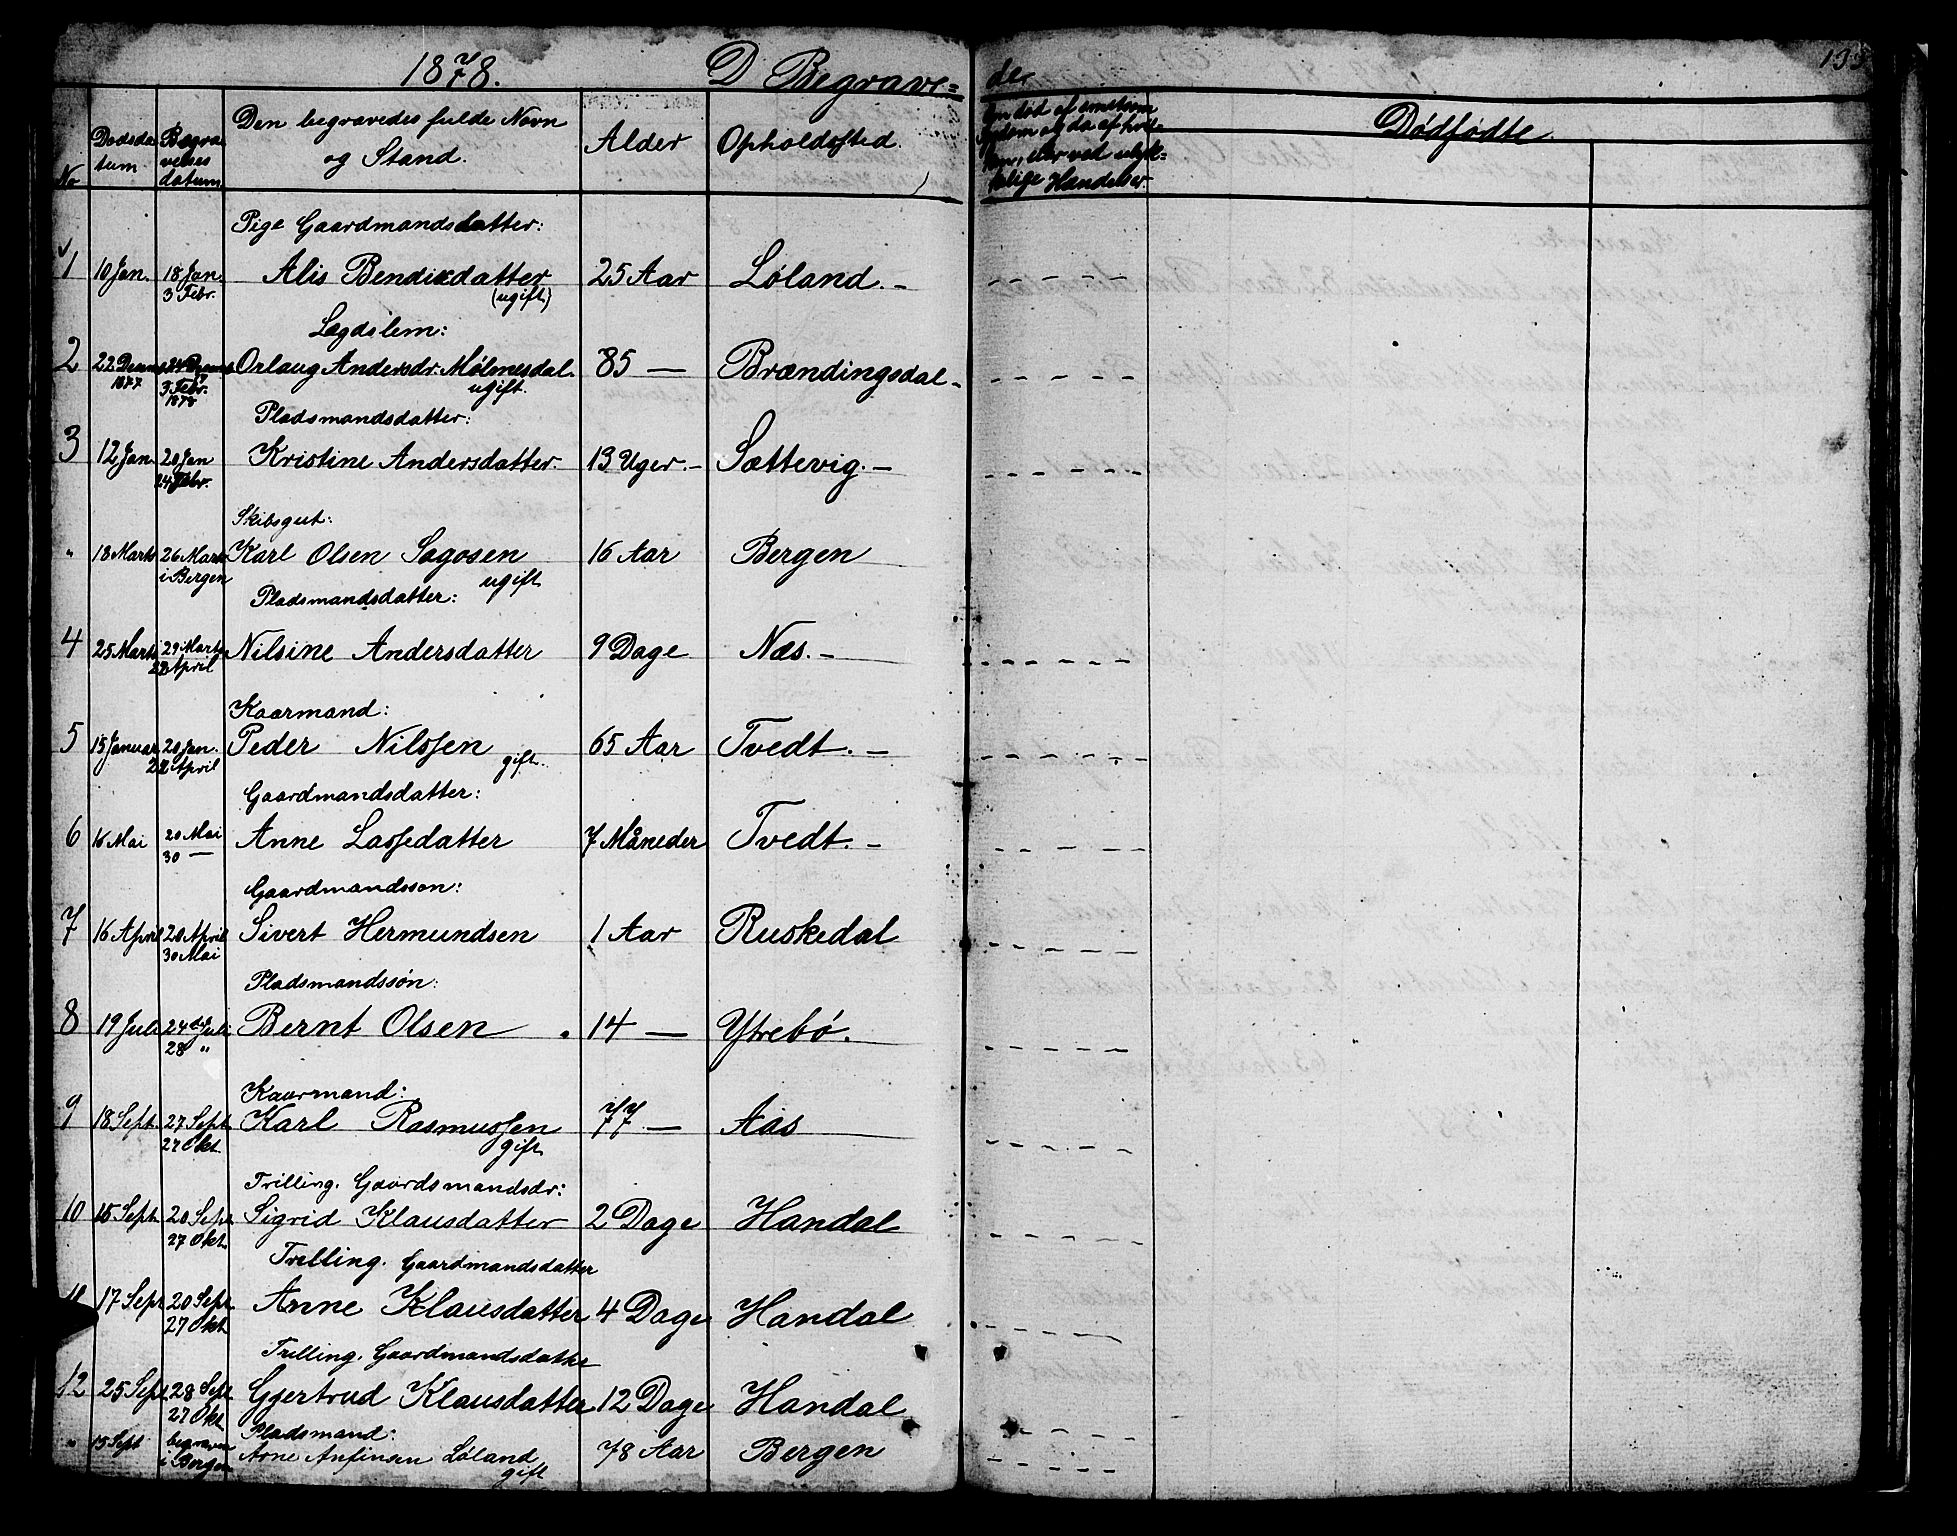 1878. D Begrave= de
133
No
Dødsda tum
Begra velses datum
Den begravedes fulde Navn og Stand.
Alder
Opholdssted.
død af smitsom
Sygdom og da af hvil=
ken, eller ved ulyk=
kelige Hændelser
Dødfødte
Pige Gaardmandsdatter:
1 10 Jan. 18 Jan. Alis Bendixdatter 25 Aar Løland. -
3 Febr. (ugift)
Lægdslem:
2 22 Decem 24 Decemb Orlaug Andersdr. Mølmesdal. 85 — Brændingsdal -
1877 3 Febr. 1878 ugift.
Pladsmandsdatter:
3 12 Jan 20 Jan Kristine Andersdatter. 13 Uger. - Sættevig. -
24 Febr.
Skibsgut:
" 18 Marts 26 Marts Karl Olsen Sagosen 16 Aar Bergen
i Bergen ugift
Pladsmandsdatter:
4 25 Marts 29 Marts Nilsine Andersdatter 9 Dage Næs. -
22 April
Kaarmand:
5 15 Januar 20 Jan. Peder Nilssen 65 Aar Tvedt. -
22 April gift.
Gaardmandsdatter:
6 16 Mai 20 Mai Anne Lassedatter 7 Måneder Tvedt. -
30 —
Gaardmandsson:
7 16 April 20 April Sivert Hermundsen 1 Aar Ruskedal
30 Mai
Pladsmandssøn:
8 19 Juli 24de Juli Bernt Olsen 14 — Ytrebö.
28 "
Kaarmand:
9 18 Sept. 27 Sept. Karl Rasmussen 77 — Aas
27 Okt. gift
Trilling. Gaardsmandsdr:
10 15 Sept. 20 Sept. Sigrid Klausdatter 2 Dage Handal
27 Okt.
Trilling. Gaardmandsdatter
11 17 Sept 20 Sept. Anne Klausdatter 4 Dage Handal
27 Okt
Trilling. Gaardmandsdatter
12 25 Sept 28 Sept. Gjertrud Klausdatter 12 Dage Handal
27 Okt
Pladsmand:
" 15 Sept begraven Arne Anfinsen Løland 78 Aar Bergen
i Bergen gift